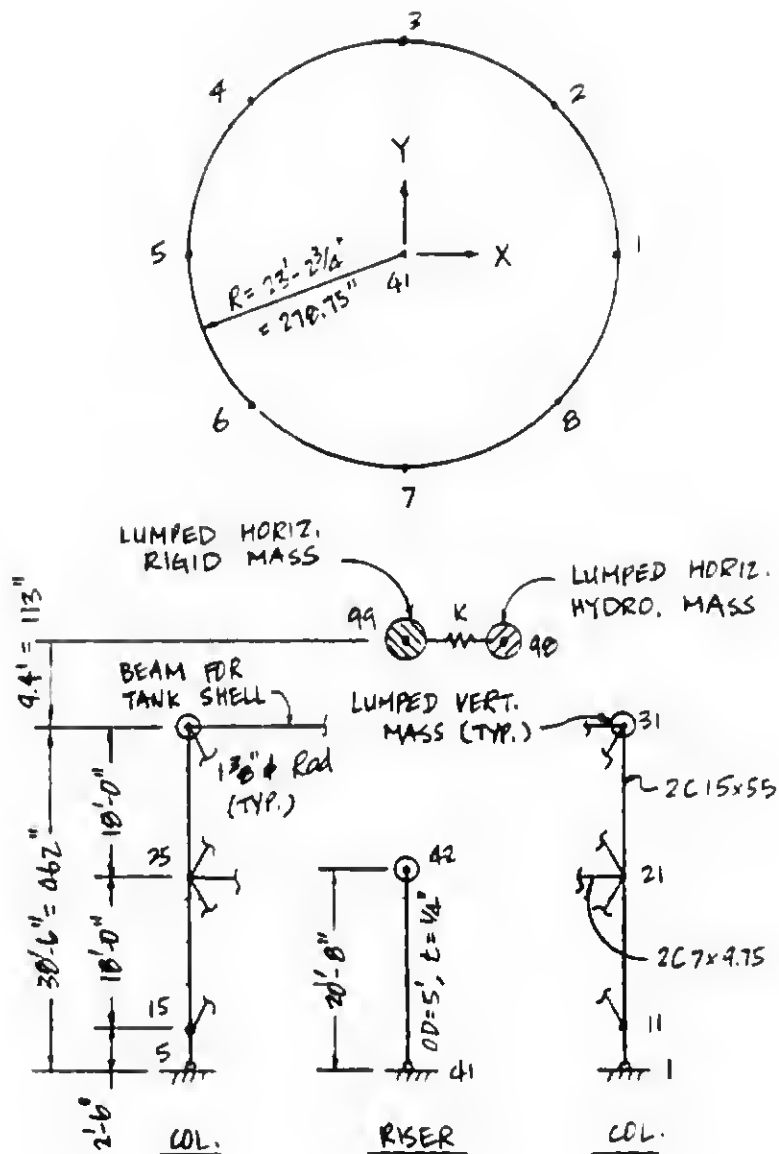 3
4
2
Y
5
X
1
41
R = 23'-2 3/4"
= 278.75"
6
8
7
LUMPED HORIZ.
RIGID MASS
LUMPED HORIZ.
HYDRO. MASS
99
K
98
9.4' = 113"
BEAM FOR
TANK SHELL
LUMPED VERT.
MASS (TYP.)
31
1 3/8" φ Rod
(TYP.)
2C15x55
18'-0"
38'-6" = 462"
25
42
21
18'-0"
20'-8"
OD=5', t=1/4"
2C7x9.75
15
11
5
41
1
2'-6"
COL.
RISER
COL.